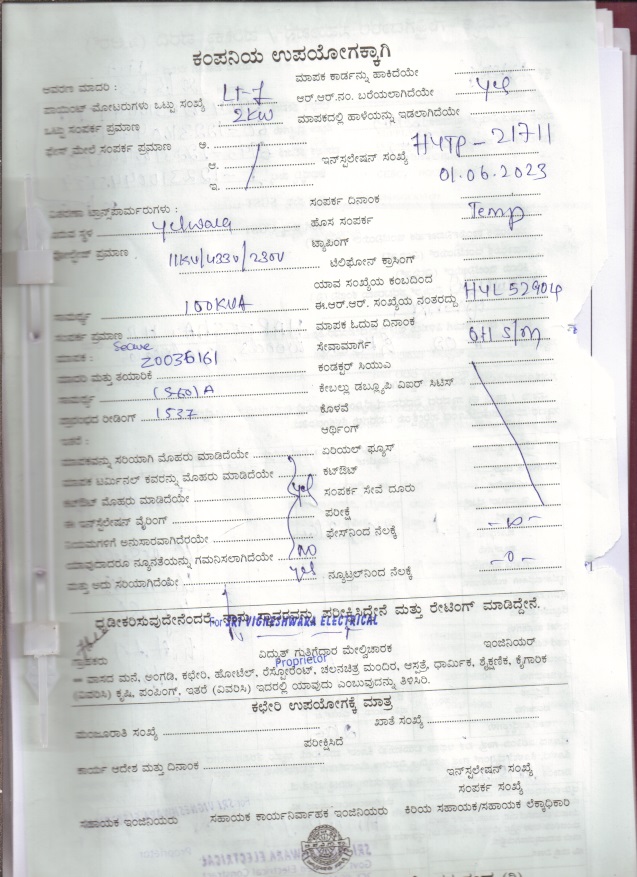 ಕಂಪನಿಯ ಉಪಯೋಗಕ್ಕಾಗಿ
ಆವರಣ ಮಾದರಿ : LT-7 ಮಾಪಕ ಕಾರ್ಡನ್ನು ಹಾಕಿದೆಯೇ
ಪಾಯಿಂಟ್ ಮೋಟರುಗಳು ಒಟ್ಟು ಸಂಖ್ಯೆ ಆರ್.ಆರ್.ನಂ. ಬರೆಯಲಾಗಿದೆಯೇ yes
ಒಟ್ಟು ಸಂಪರ್ಕ ಪ್ರಮಾಣ 2KW ಮಾಪಕದಲ್ಲಿ ಹಾಳೆಯನ್ನು ಇಡಲಾಗಿದೆಯೇ
ಫೇಸ್ ಮೇಲೆ ಸಂಪರ್ಕ ಪ್ರಮಾಣ ಅ.
ಆ. ಇನ್‌ಸ್ಟಲೇಷನ್ ಸಂಖ್ಯೆ HYTP-21711
ಇ. 01.06.2023
ವಿತರಣಾ ಟ್ರಾನ್ಸ್‌ಫಾರ್ಮರುಗಳು : ಸಂಪರ್ಕ ದಿನಾಂಕ
ಇರುವ ಸ್ಥಳ Yelwala ಹೊಸ ಸಂಪರ್ಕ Temp
ಟ್ಯಾಪಿಂಗ್
ವೋಲ್ಟೇಜ್ ಪ್ರಮಾಣ 11KV/433V/230V ಟೆಲಿಫೋನ್ ಕ್ರಾಸಿಂಗ್
ಯಾವ ಸಂಖ್ಯೆಯ ಕಂಬದಿಂದ
ಸಾಮರ್ಥ್ಯ 100KVA ಈ.ಆರ್.ಆರ್. ಸಂಖ್ಯೆಯ ನಂತರದ್ದು HYL52904
ಸಂಪರ್ಕ ಪ್ರಮಾಣ ಮಾಪಕ ಓದುವ ದಿನಾಂಕ
ಮಾಪಕ : Secure 20036161 ಸೇವಾಮಾರ್ಗ OH S/M
ಮಾದರಿ ಮತ್ತು ತಯಾರಿಕೆ ಕಂಡಕ್ಟರ್ ಸಿಯುಎ
ಸಾಮರ್ಥ್ಯ (5-60) A ಕೇಬಲ್ಲು ಡಬ್ಲ್ಯೂಪಿ ವಿಐರ್ ಸಿಟಿಸ್
ಪ್ರಾರಂಭದ ರೀಡಿಂಗ್ 1537 ಕೊಳವೆ
ಇತರೆ : ಆರ್ಥಿಂಗ್
ಮಾಪಕವನ್ನು ಸರಿಯಾಗಿ ಮೊಹರು ಮಾಡಿದೆಯೇ ಏರಿಯಲ್ ಫ್ಯೂಸ್
ಮಾಪಕ ಟರ್ಮಿನಲ್ ಕವರನ್ನು ಮೊಹರು ಮಾಡಿದೆಯೇ ಕಟ್‌ಔಟ್
ಕಟ್‌ಔಟ್ ಮೊಹರು ಮಾಡಿದೆಯೇ yes ಸಂಪರ್ಕ ಸೇವೆ ದೂರು
ಈ ಇನ್‌ಸ್ಟಲೇಷನ್ ವೈರಿಂಗ್ ಪರೀಕ್ಷೆ
ನಿಯಮಗಳಿಗೆ ಅನುಸಾರವಾಗಿದೆರೆಯೇ ಫೇಸ್‌ನಿಂದ ನೆಲಕ್ಕೆ
ಯಾವುದಾದರೂ ನ್ಯೂನತೆಯನ್ನು ಗಮನಿಸಲಾಗಿದೆಯೇ NO
ಮತ್ತು ಅದು ಸರಿಯಾಗಿದೆಯೇ yes ನ್ಯೂಟ್ರಲ್‌ನಿಂದ ನೆಲಕ್ಕೆ -0-
ದೃಡೀಕರಿಸುವುದೇನೆಂದರೆ, ನಾನು ಸ್ಥಾವರವನ್ನು ಪರೀಕ್ಷಿಸಿದ್ದೇನೆ ಮತ್ತು ರೇಟಿಂಗ್ ಮಾಡಿದ್ದೇನೆ.
For SRI VIGNESHWARA ELECTRICAL
ಗ್ರಾಹಕರು ವಿದ್ಯುತ್ ಗುತ್ತಿಗೆದಾರ ಮೇಲ್ವಿಚಾರಕ ಇಂಜಿನಿಯರ್
Proprietor
ವಾಸದ ಮನೆ, ಅಂಗಡಿ, ಕಛೇರಿ, ಹೋಟೆಲ್, ರೆಸ್ಟೋರೆಂಟ್, ಚಲನಚಿತ್ರ ಮಂದಿರ, ಆಸ್ಪತ್ರೆ, ಧಾರ್ಮಿಕ, ಶೈಕ್ಷಣಿಕ, ಕೈಗಾರಿಕೆ
(ವಿವರಿಸಿ) ಕೃಷಿ, ಪಂಪಿಂಗ್, ಇತರೆ (ವಿವರಿಸಿ) ಇದರಲ್ಲಿ ಯಾವುದು ಎಂಬುವುದನ್ನು ತಿಳಿಸಿರಿ.
ಕಛೇರಿ ಉಪಯೋಗಕ್ಕೆ ಮಾತ್ರ
ಮಂಜೂರಾತಿ ಸಂಖ್ಯೆ ಖಾತೆ ಸಂಖ್ಯೆ
ಪರೀಕ್ಷಿಸಿದೆ
ಕಾರ್ಯ ಆದೇಶ ಮತ್ತು ದಿನಾಂಕ
ಇನ್‌ಸ್ಟಲೇಷನ್ ಸಂಖ್ಯೆ
ಸಂಪರ್ಕ ಸಂಖ್ಯೆ
ಸಹಾಯಕ ಇಂಜಿನಿಯರು ಸಹಾಯಕ ಕಾರ್ಯನಿರ್ವಾಹಕ ಇಂಜಿನಿಯರು ಕಿರಿಯ ಸಹಾಯಕ/ಸಹಾಯಕ ಲೆಕ್ಕಾಧಿಕಾರಿ